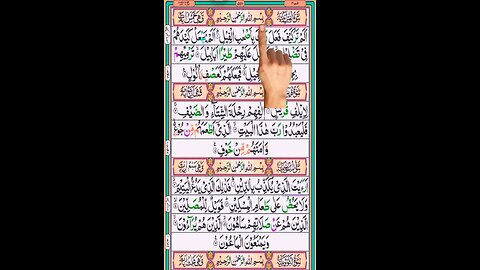 بِسْمِ اللهِ الرَّحْمٰنِ الرَّحِيْمِ
اَلَمْ تَرَ كَيْفَ فَعَلَ بِاَصْحٰبِ الْفِيْلِ اَلَمْ يَجْعَلْ كَيْدَهُمْ
فِيْ عَلَيْهِمْ طَيْرًا اَبَابِيْلَ تَرْمِيْهِمْ
فَجَعَلَهُمْ كَعَصْفٍ مَّاْكُوْلٍ
بِسْمِ اللهِ الرَّحْمٰنِ الرَّحِيْمِ
لِاِيْلٰفِ قُرَيْشٍ اٖلٰفِهِمْ رِحْلَةَ الشِّتَآءِ وَالصَّيْفِ
فَلْيَعْبُدُوْا رَبَّ هٰذَا الْبَيْتِ الَّذِيْٓ اَطْعَمَهُمْ مِّنْ جُوْعٍ
وَّاٰمَنَهُمْ مِّنْ خَوْفٍ
بِسْمِ اللهِ الرَّحْمٰنِ الرَّحِيْمِ
اَرَءَيْتَ الَّذِيْ يُكَذِّبُ بِالدِّيْنِ فَذٰلِكَ الَّذِيْ يَدُعُّ الْيَتِيْمَ
وَلَا يَحُضُّ عَلٰى طَعَامِ الْمِسْكِيْنِ فَوَيْلٌ لِّلْمُصَلِّيْنَ
الَّذِيْنَ هُمْ عَنْ صَلَاتِهِمْ سَاهُوْنَ الَّذِيْنَ هُمْ يُرَآءُوْنَ
وَيَمْنَعُوْنَ الْمَاعُوْنَ
بِسْمِ اللهِ الرَّحْمٰنِ الرَّحِيْمِ